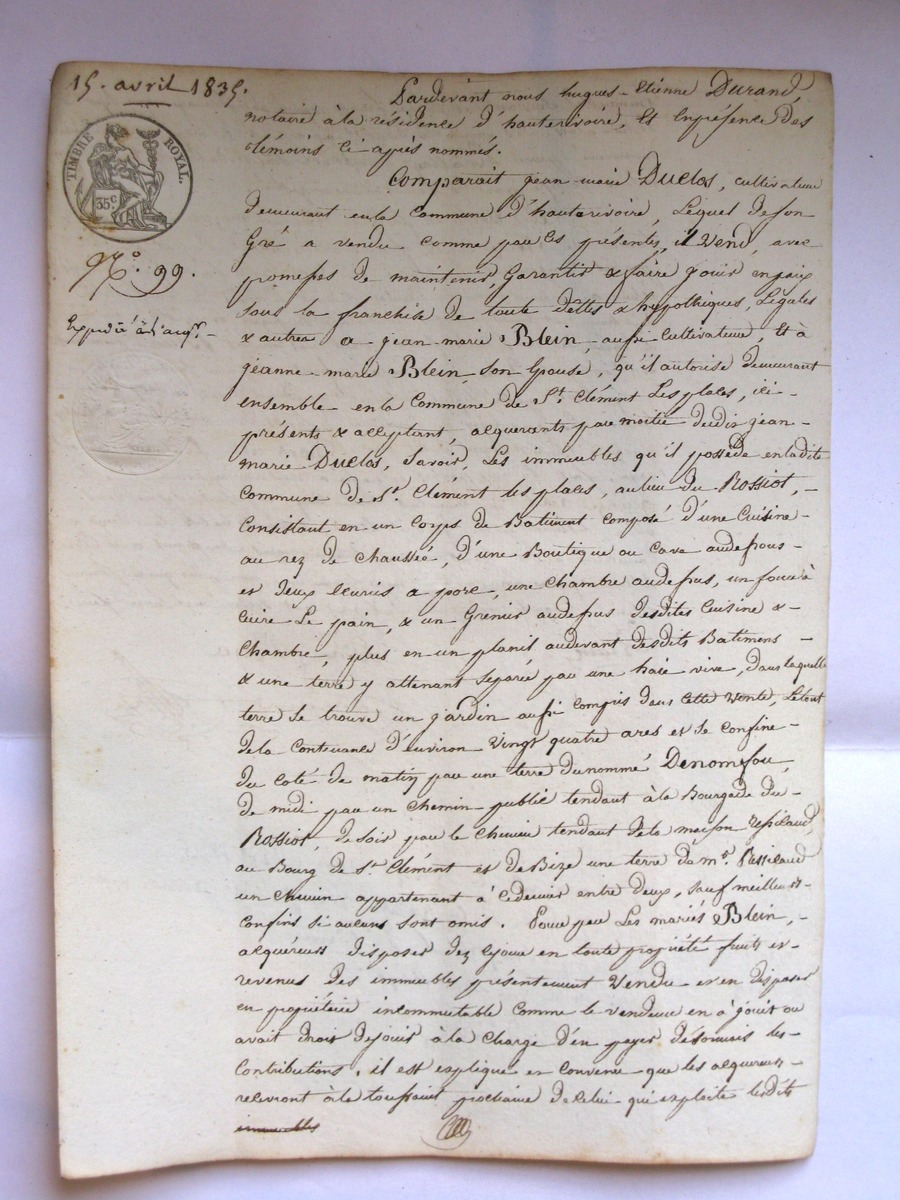 15. avril 1835.
TIMBRE ROYAL.
35c.
N.o 99.
Expédié à l'acqr.
Pardevant nous hugues-Etienne Durand,
notaire à la résidence d'hauterivoire, et En présence des
témoins ci après nommés.
Comparait jean-marie Duclos, cultivateur
demeurant en la Commune d'hauterivoire, Lequel de son
Gré a vendu comme par les présentes, il Vend, avec
promesses de maintenir, Garantir & faire jouir en paix
sous la franchise de toute dettes & hypothèques, Légales
& autres a jean-marie Blein, aussi Cultivateur, Et à
jeanne-marie Blein, son Epouse, qu'il autorise demeurant
ensemble en la Commune de St. Clément Les places, ici
présents & acceptant, acquérants par moitié dudit jean-
marie Duclos, Savoir, Les immeubles qu'il possède en ladite
Commune de St. Clément les places, au lieu du Rossiot,
Consistant en un Corps de Batiment composé d'une Cuisine
au rez de Chaussée, d'une Boutique ou Cave au dessous
et deux Ecuries a porc, une chambre au dessus, un four à
Cuire Le pain, & un Grenier au dessus desdites Cuisine &
Chambre, plus en un plasis au devant desdits Batimens
& une terre y attenant séparée par une haie vive, dans laquelle
terre se trouve un jardin aussi compris dans cette vente, Le tout
de la Contenance d'environ vingt quatre ares et se Confine
du coté de matin par une terre du nommé Denomefou,
de midi par un Chemin public tendant à la Bourgade du
Rossiot, de soir par le Chemin tendant de la maison ressicaud,
au Bourg de St. Clément et de Bize une terre de mr. Ressicaud
un Chemin appartenant à ce dernier entre deux, sauf meilleurs
Confins si aucuns sont omis. Pour par Les mariés Blein,
acquéreurs disposer dez ce jour en toute propriété fruits et
revenus des immeubles présentement Vendu et en disposer
en propriétaire incommutable Comme le vendeur en à jouit ou
avait Droit de jouir à la Charge d'en payer désormais les
Contributions. il est expliqué et Convenu que les acquéreurs
relevront à la toussaint prochaine de celui qui exploite lesdits
immeubles